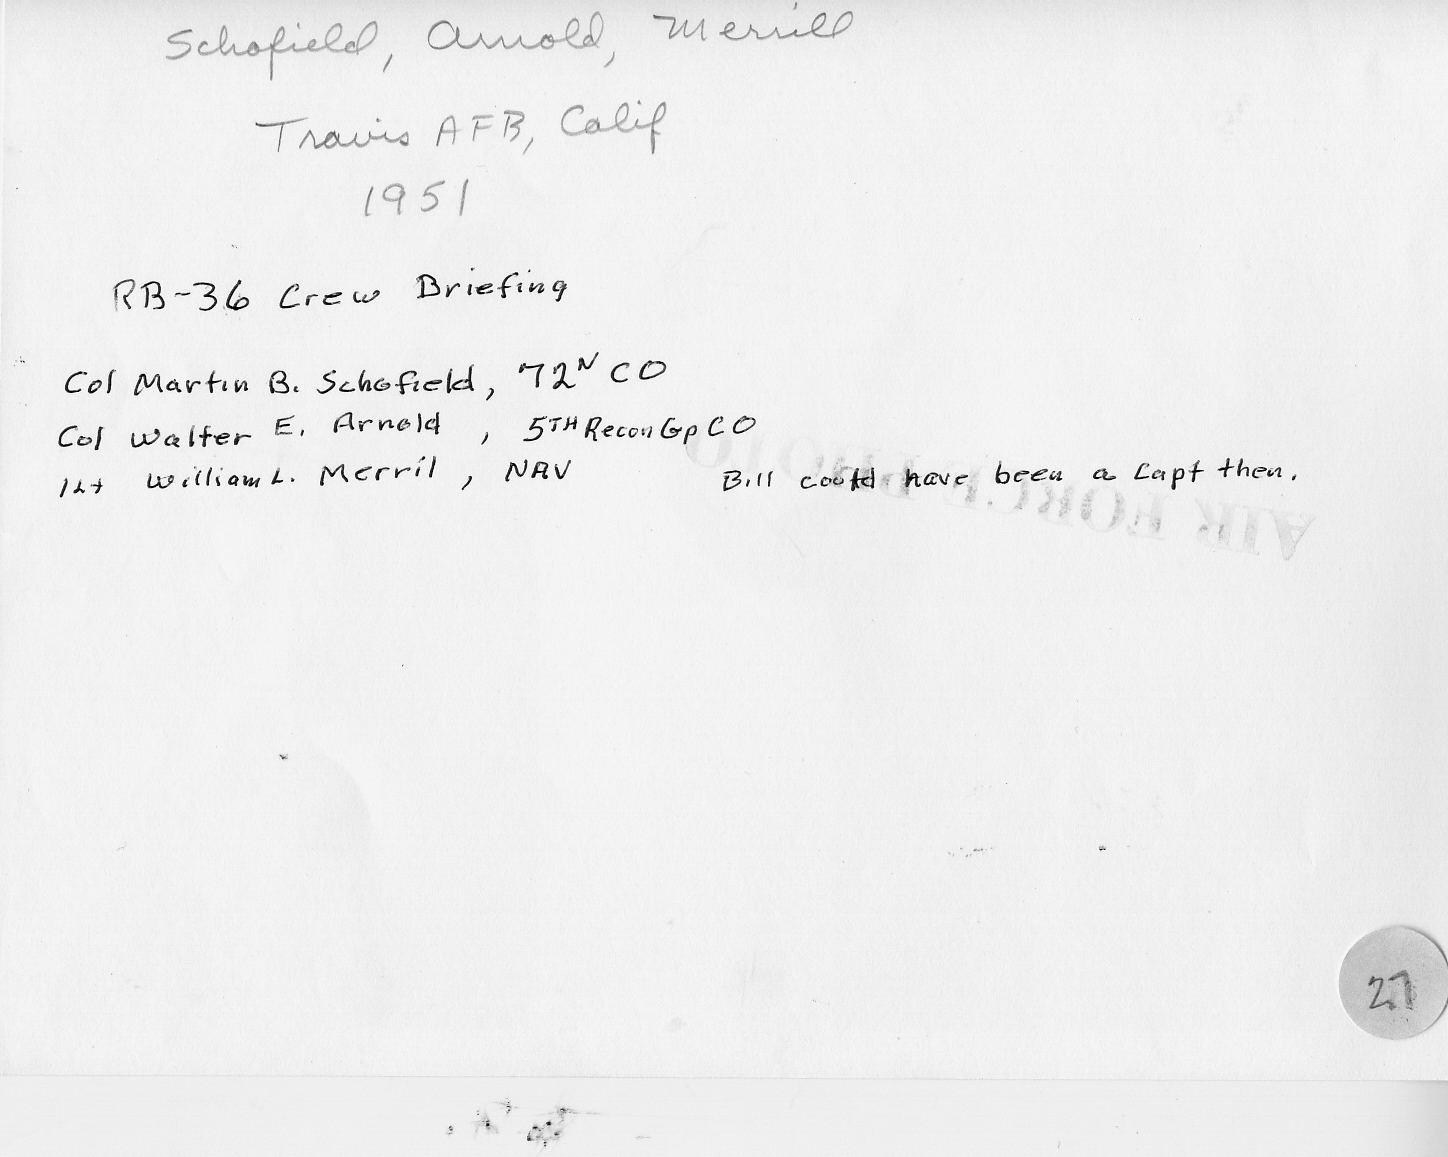 Schofield, Arnold, Merrill
Travis AFB, Calif
1951
RB-36 Crew Briefing
Col Martin B. Schofield, 72ᴺ CO
Col Walter E. Arnold, 5TH Recon Gp CO
1Lt William L. Merril, NAV Bill could have been a Capt then.
AIR FORCE PHOTO
27